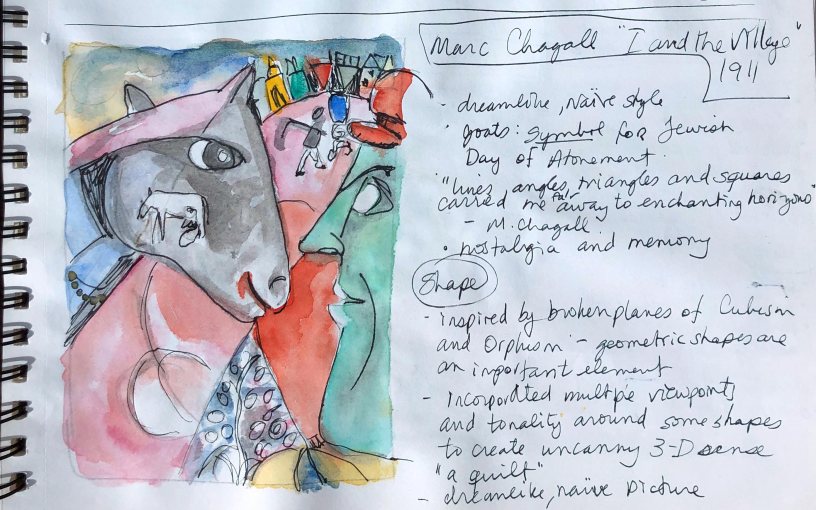 Marc Chagall "I and the Village"
1911
- dreamlike, Naïve style
• goats: symbol for Jewish
Day of Atonement.
"lines, angles, triangles and squares
carried me far away to enchanting horizons"
- M. Chagall
• nostalgia and memory
Shape
- inspired by broken planes of Cubism
and Orphism - geometric shapes are
an important element
- Incorporated multiple viewpoints
and tonality around some shapes
to create uncanny 3-D sense
"a quilt"
- dreamlike, naïve picture